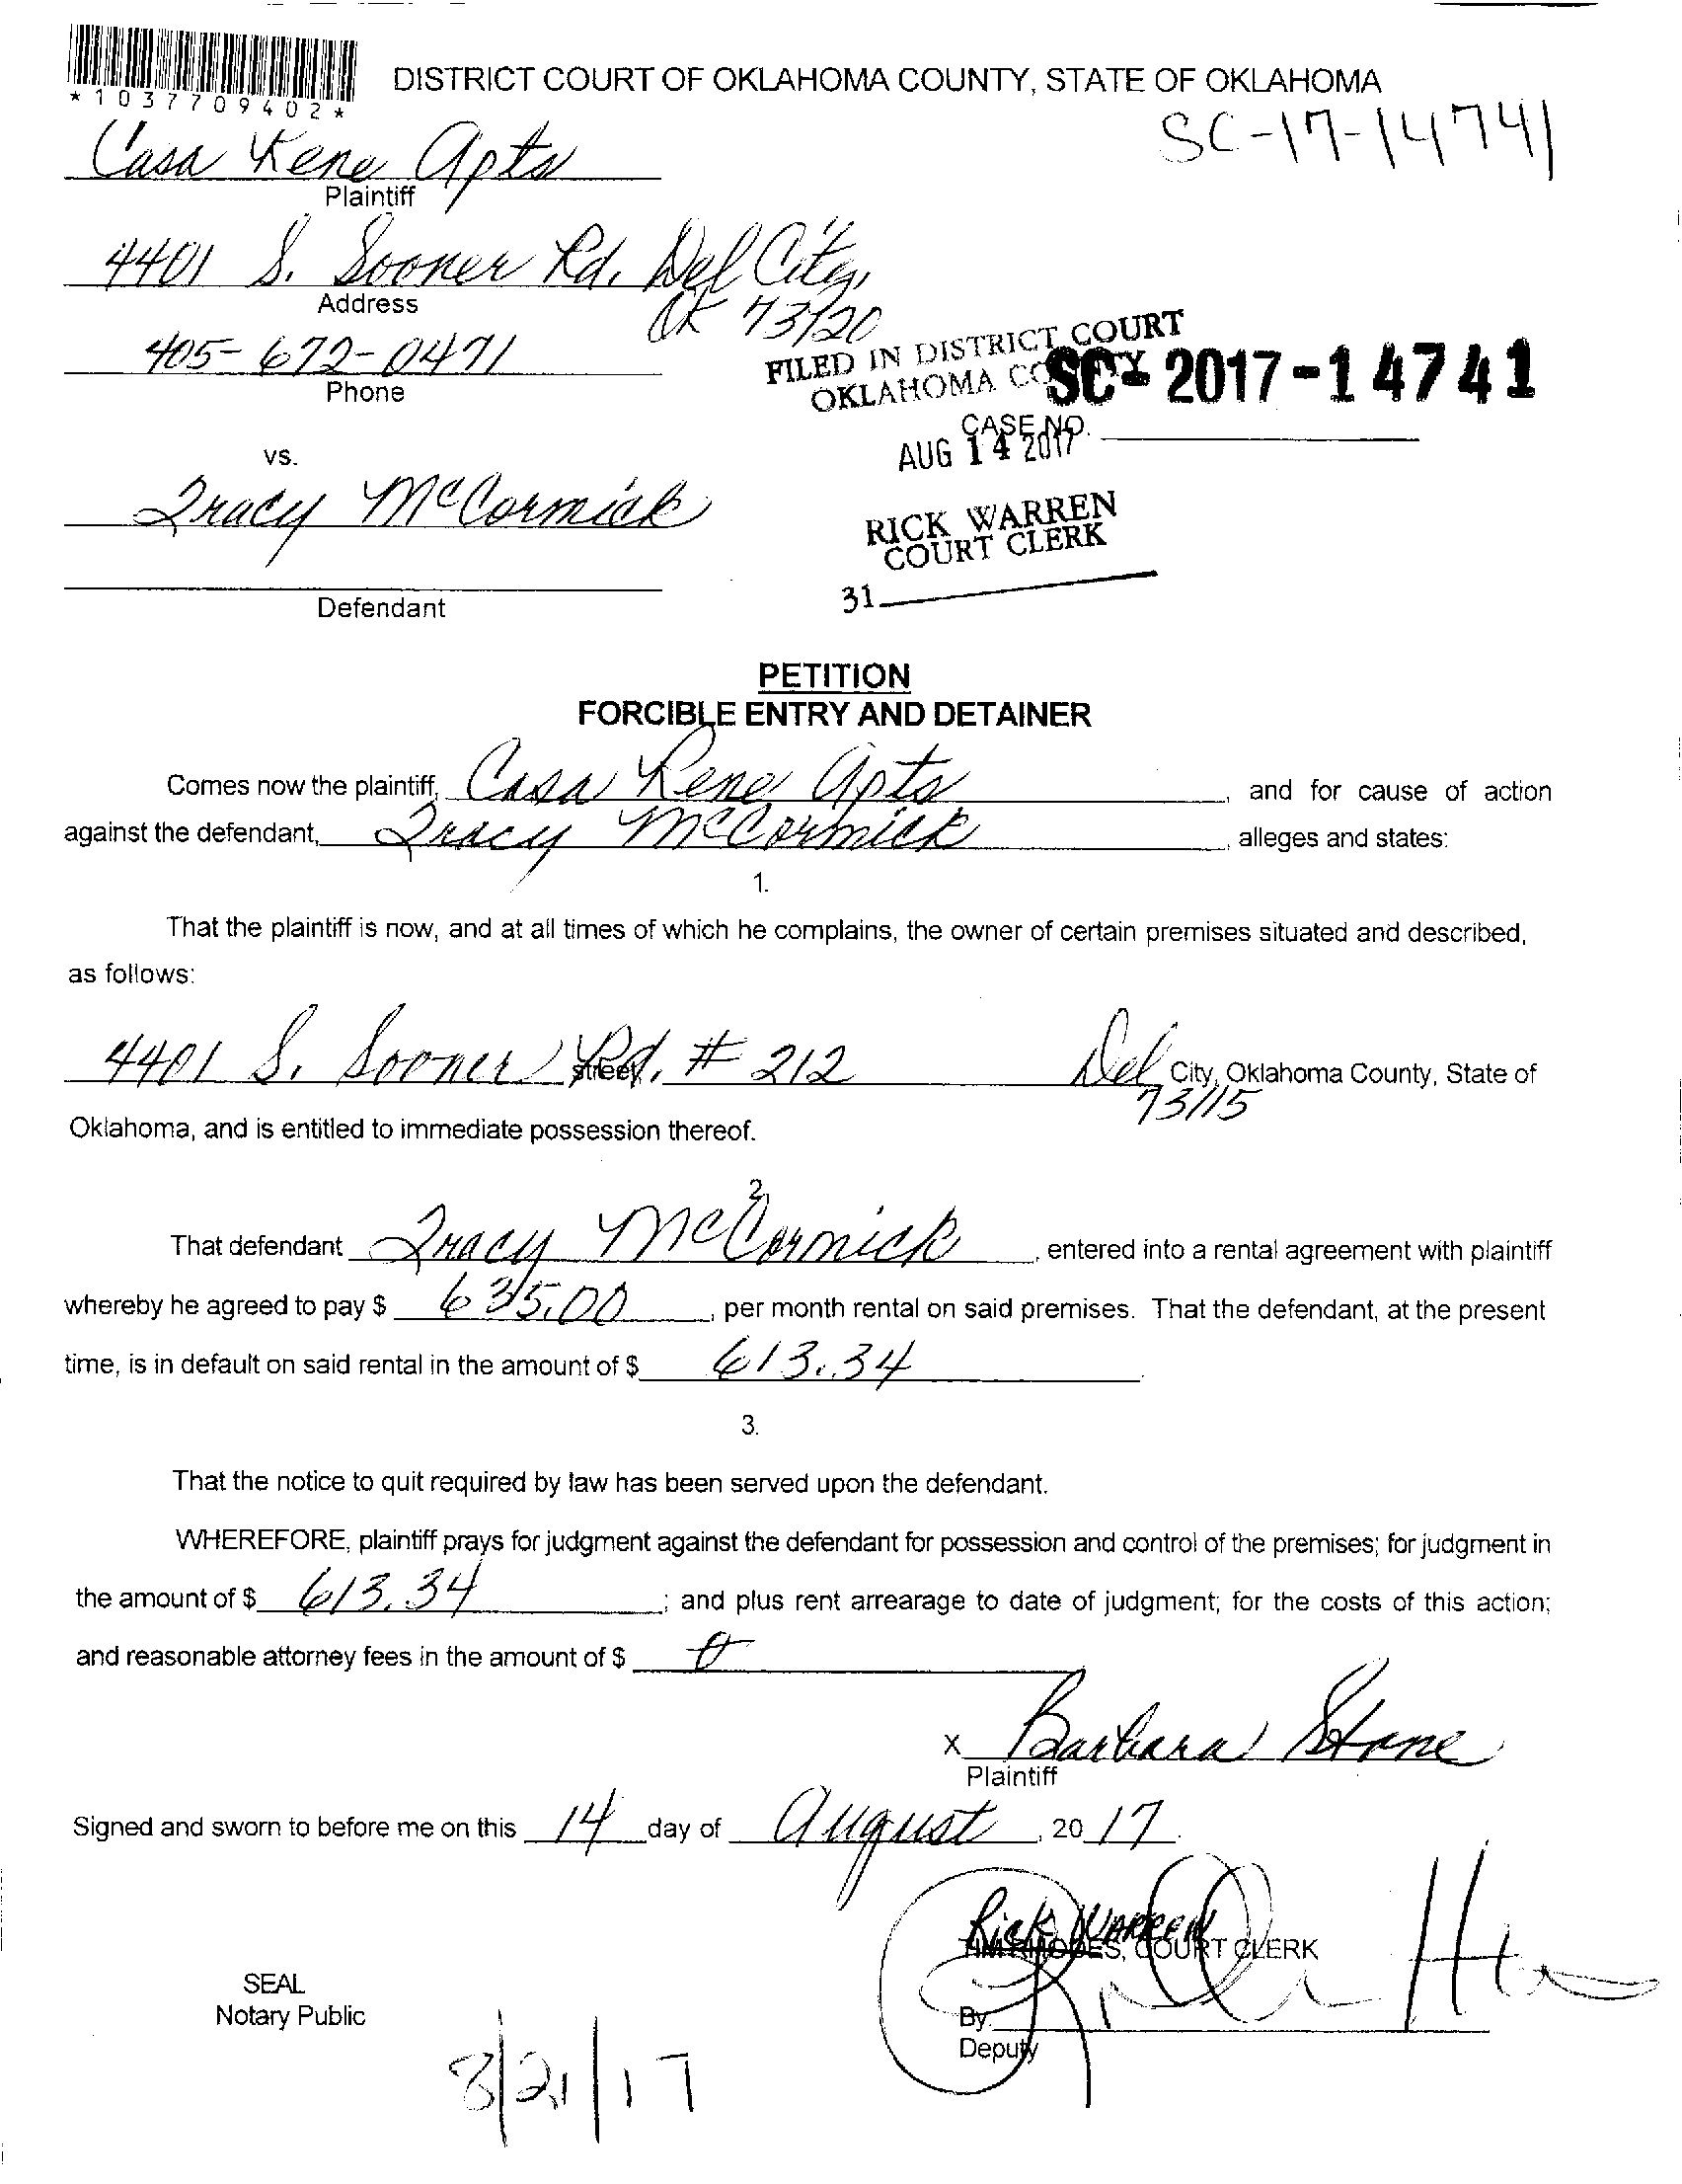 *1037709402*
DISTRICT COURT OF OKLAHOMA COUNTY, STATE OF OKLAHOMA
SC-17-14741
Casa Rene Apts
Plaintiff
4401 S. Sooner Rd. Del City,
OK 73120
Address
405-672-0471
Phone
FILED IN DISTRICT COURT
OKLAHOMA COUNTY
SC- 2017-14741
CASE NO.
AUG 14 2017
vs.
Tracy McCormick
RICK WARREN
COURT CLERK
31
Defendant
PETITION
FORCIBLE ENTRY AND DETAINER
Comes now the plaintiff, Casa Rene Apts, and for cause of action
against the defendant, Tracy McCormick, alleges and states:
1.
That the plaintiff is now, and at all times of which he complains, the owner of certain premises situated and described,
as follows:
4401 S. Sooner Rd. # 212 Del City, Oklahoma County, State of
street,
73115
Oklahoma, and is entitled to immediate possession thereof.
2.
That defendant Tracy McCormick, entered into a rental agreement with plaintiff
whereby he agreed to pay $ 635.00, per month rental on said premises. That the defendant, at the present
time, is in default on said rental in the amount of $ 613.34.
3.
That the notice to quit required by law has been served upon the defendant.
WHEREFORE, plaintiff prays for judgment against the defendant for possession and control of the premises; for judgment in
the amount of $ 613.34; and plus rent arrearage to date of judgment; for the costs of this action;
and reasonable attorney fees in the amount of $ 0
x Barbara Stone
Plaintiff
Signed and sworn to before me on this 14 day of August, 20 17.
Rick WARREN
TIM RHODES, COURT CLERK
SEAL
Notary Public
By:
Deputy
8/21/17